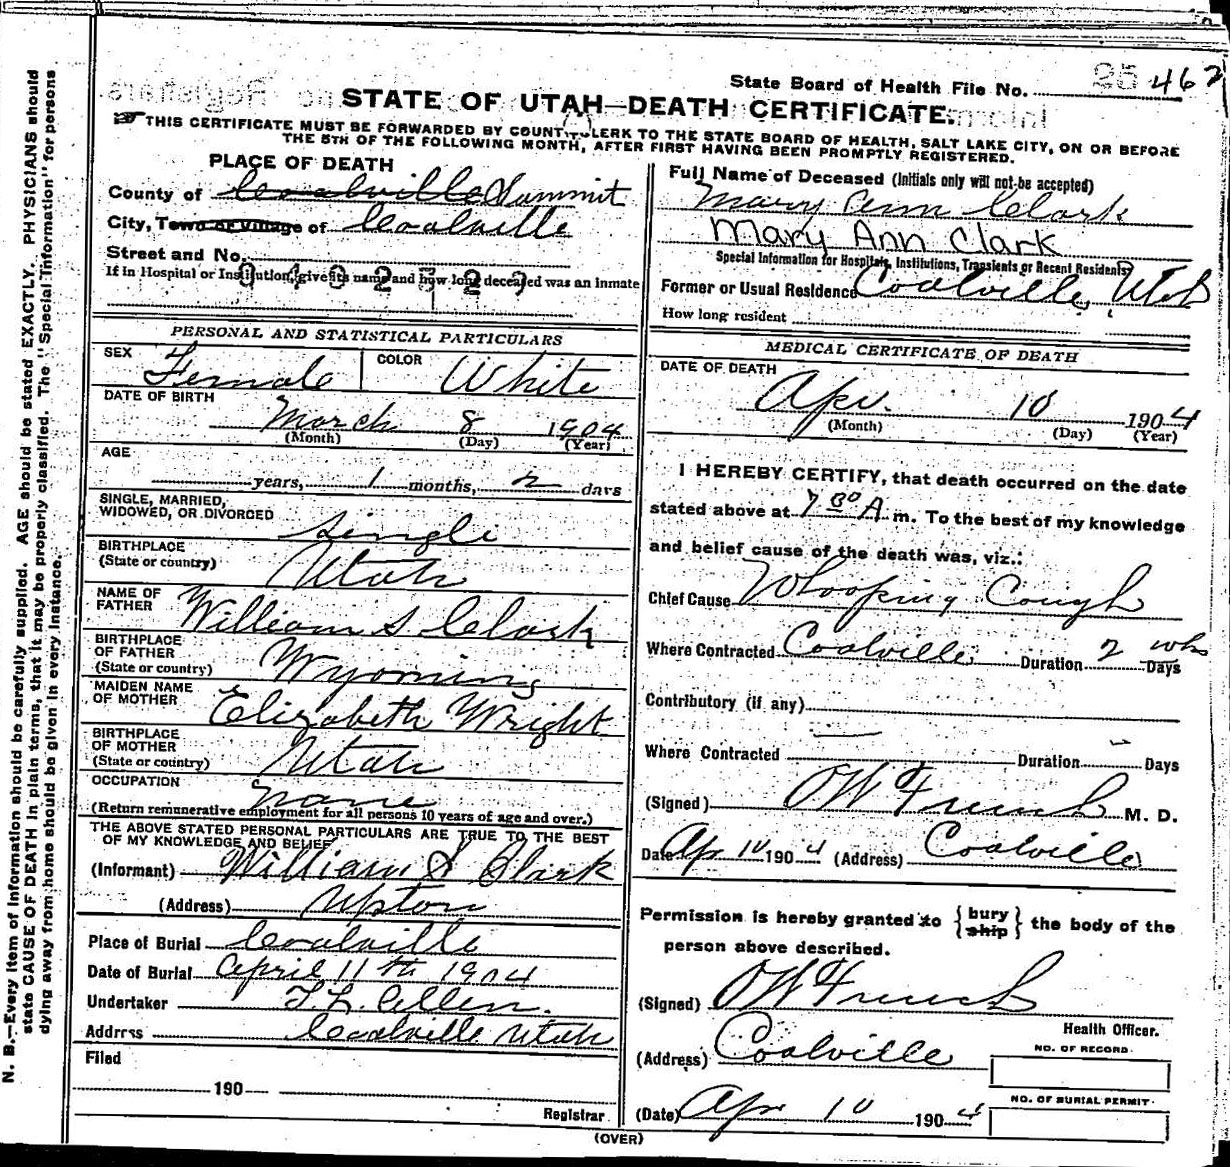 State Board of Health File No. 25 462
STATE OF UTAH—DEATH CERTIFICATE.
THIS CERTIFICATE MUST BE FORWARDED BY COUNTY CLERK TO THE STATE BOARD OF HEALTH, SALT LAKE CITY, ON OR BEFORE
THE 5TH OF THE FOLLOWING MONTH, AFTER FIRST HAVING BEEN PROMPTLY REGISTERED.
PLACE OF DEATH
County of Coalville Summit
City, Town or Village of Coalville
Street and No.
If in Hospital or Institution, give its name and how long deceased was an inmate
PERSONAL AND STATISTICAL PARTICULARS
SEX Female COLOR White
DATE OF BIRTH
March 8 1904
(Month) (Day) (Year)
AGE
years, 1 months, 2 days
SINGLE, MARRIED,
WIDOWED, OR DIVORCED Single
BIRTHPLACE
(State or country) Utah
NAME OF
FATHER William S Clark
BIRTHPLACE
OF FATHER
(State or country) Wyoming
MAIDEN NAME
OF MOTHER Elizabeth Wright
BIRTHPLACE
OF MOTHER
(State or country) Utah
OCCUPATION None
(Return remunerative employment for all persons 10 years of age and over.)
THE ABOVE STATED PERSONAL PARTICULARS ARE TRUE TO THE BEST
OF MY KNOWLEDGE AND BELIEF
(Informant) William S Clark
(Address) Upton
Place of Burial Coalville
Date of Burial April 11th 1904
Undertaker T.L. Allen.
Address Coalville Utah
Filed
190
Registrar
Full Name of Deceased (Initials only will not be accepted)
Mary Ann Clark
Mary Ann Clark
Special Information for Hospitals, Institutions, Transients or Recent Residents
Former or Usual Residence Coalville, Utah
How long resident
MEDICAL CERTIFICATE OF DEATH
DATE OF DEATH
Apr. 10 1904
(Month) (Day) (Year)
I HEREBY CERTIFY, that death occurred on the date
stated above at 7 30 A m. To the best of my knowledge
and belief cause of the death was, viz.:
Chief Cause Whooping Cough
Where Contracted Coalville Duration 2 wks Days
Contributory (if any)
Where Contracted Duration Days
(Signed) OW French M. D.
Date Apr 10 1904 (Address) Coalville
Permission is hereby granted to {bury ship} the body of the
person above described.
(Signed) OW French
Health Officer.
(Address) Coalville
NO. OF RECORD.
(Date) Apr 10 1904
NO. OF BURIAL PERMIT.
(OVER)
N. B.—Every item of information should be carefully supplied. AGE should be stated EXACTLY. PHYSICIANS should
state CAUSE OF DEATH in plain terms, that it may be properly classified. The "Special Information" for persons
dying away from home should be given in every instance.